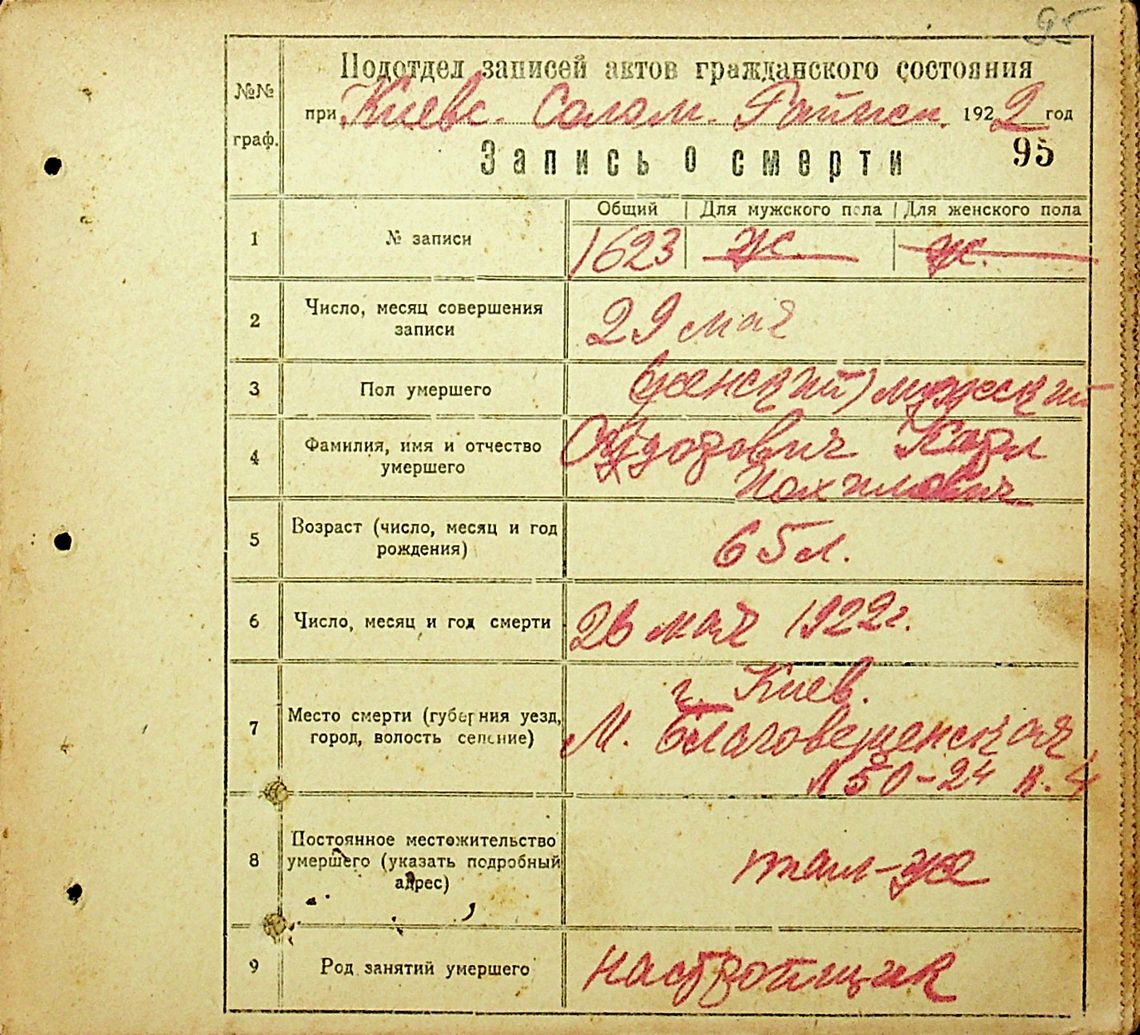 95
№№ граф.
Подотдел записей актов гражданского состояния
при Киевс. Солом. Райисп. 1922 год
Запись о смерти 95
Общий | Для мужского пола | Для женского пола
1 № записи 1623 ж. ж.
2 Число, месяц совершения
записи
29 мая
3 Пол умершего (женский) мужский
4 Фамилия, имя и отчество
умершего
Карл
5 Возраст (число, месяц и год
рождения)
65 л.
6 Число, месяц и год смерти 26 мая 1922 г.
7 Место смерти (губерния уезд,
город, волость селение)
г. Киев.
М. Благовещенская,
№ 50-24 к. 4
8 Постоянное местожительство
умершего (указать подробный
адрес)
там-же
9 Род занятий умершего настройщик